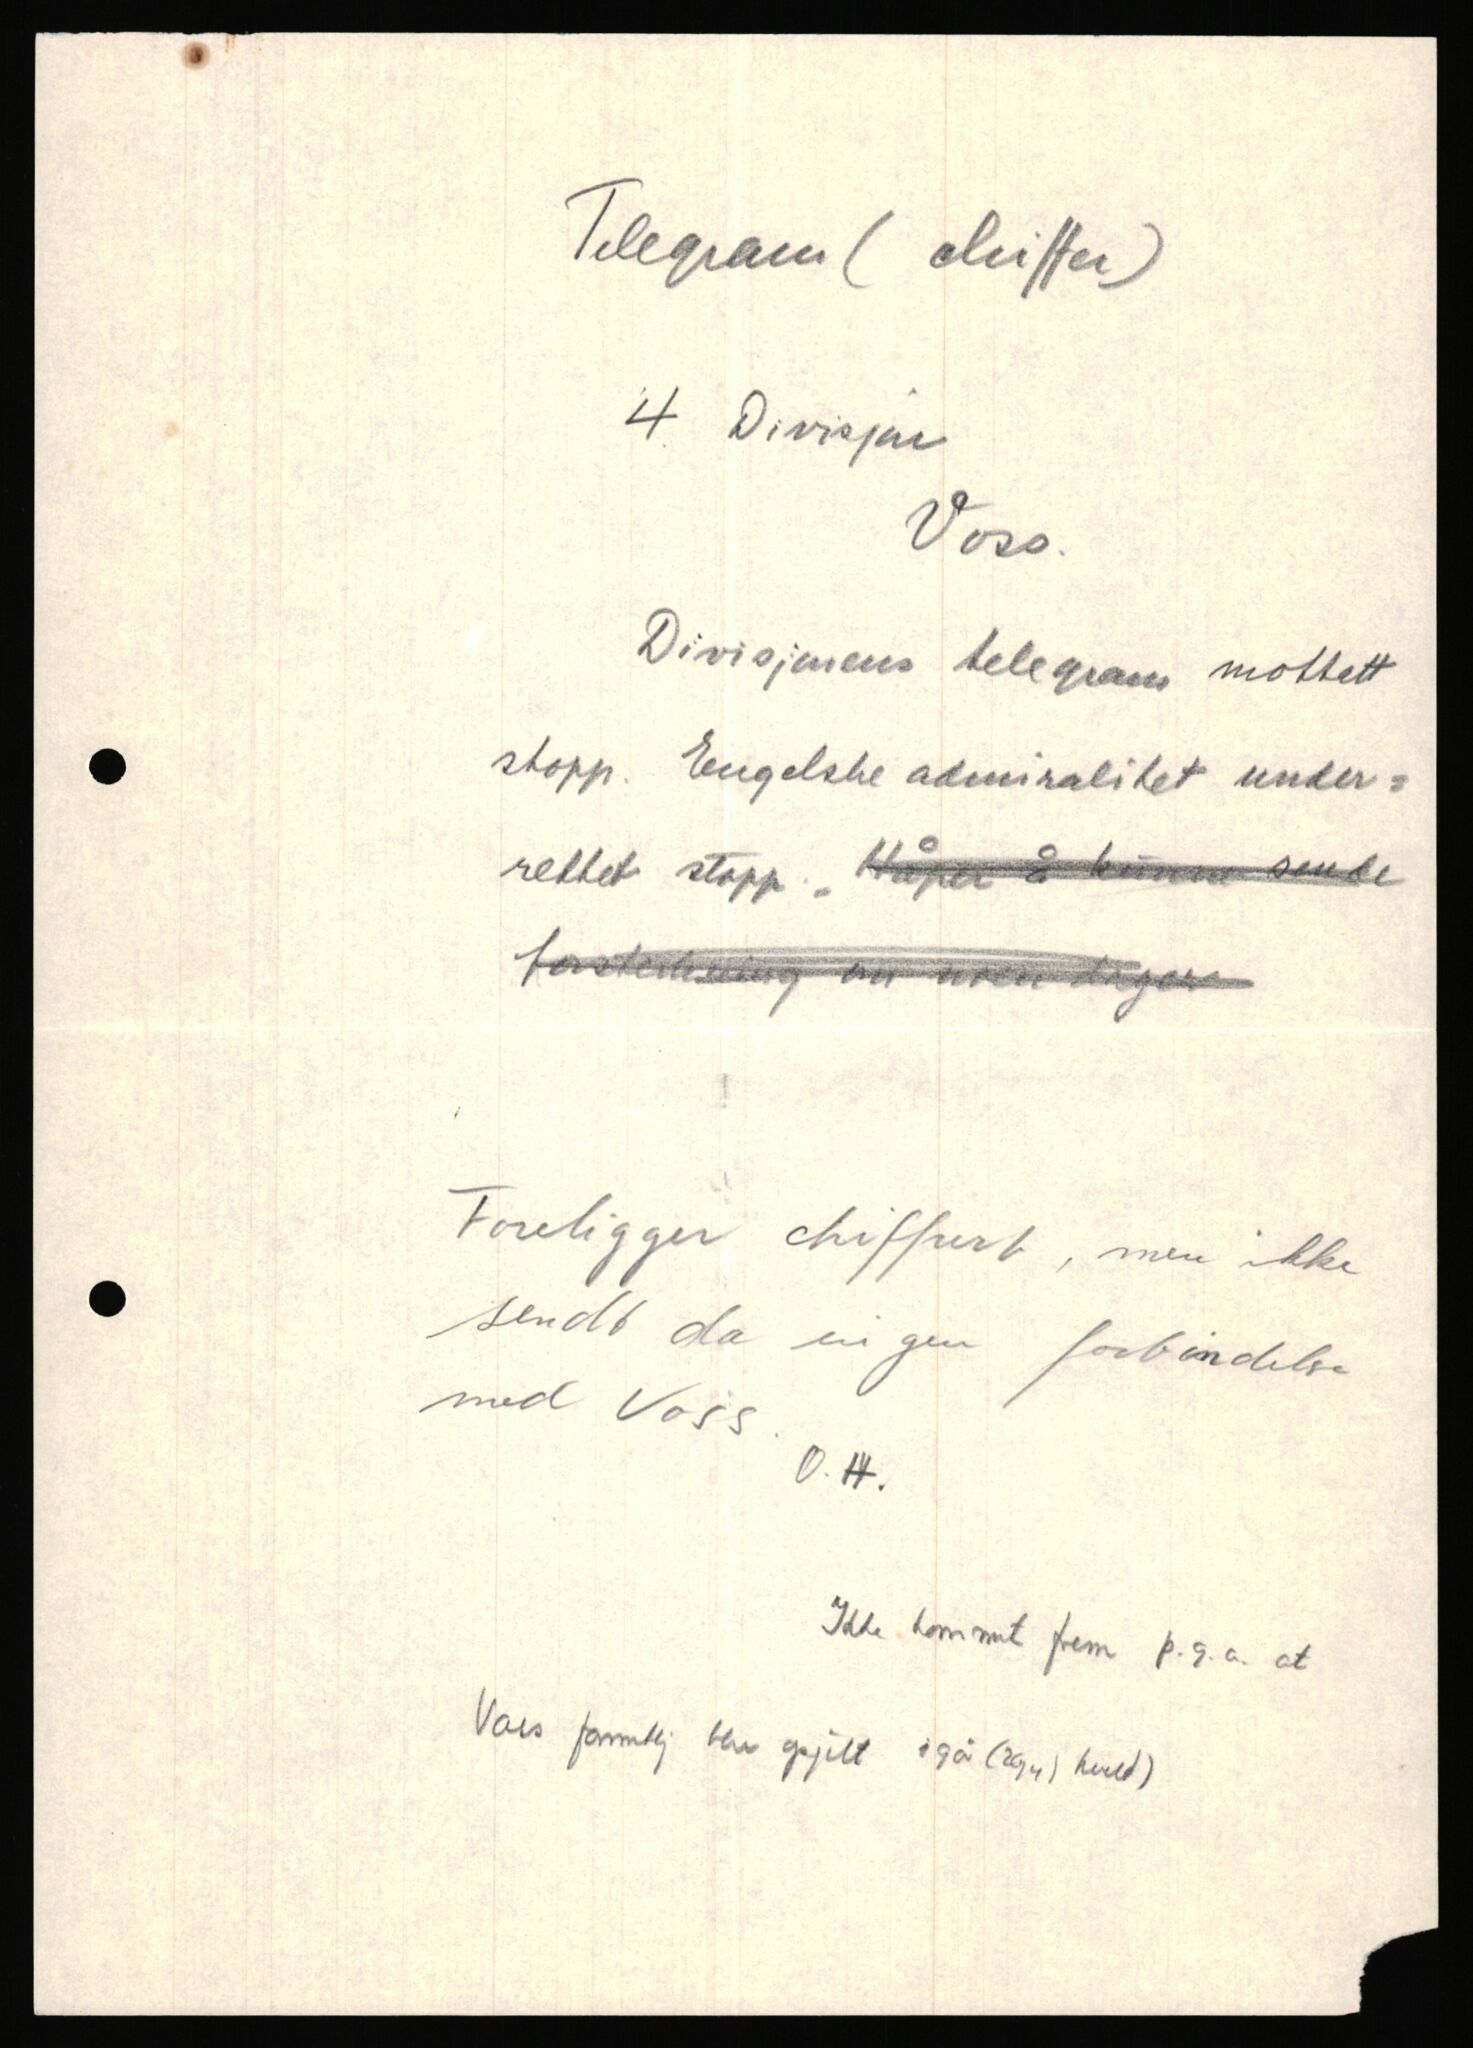 Telegram (chiffer)
4. Divisjon
Voss.
Divisjonens telegram mottatt
stopp. Engelske admiralitet under=
rettet stopp. Håper å kunne sende
forsterkning om noen dager
Foreligger chiffrert, men ikke
sendt da ingen forbindelse
med Voss.
O.H.
Ikke kommet frem p.g.a. at
Voss igår (29/4) kveld)